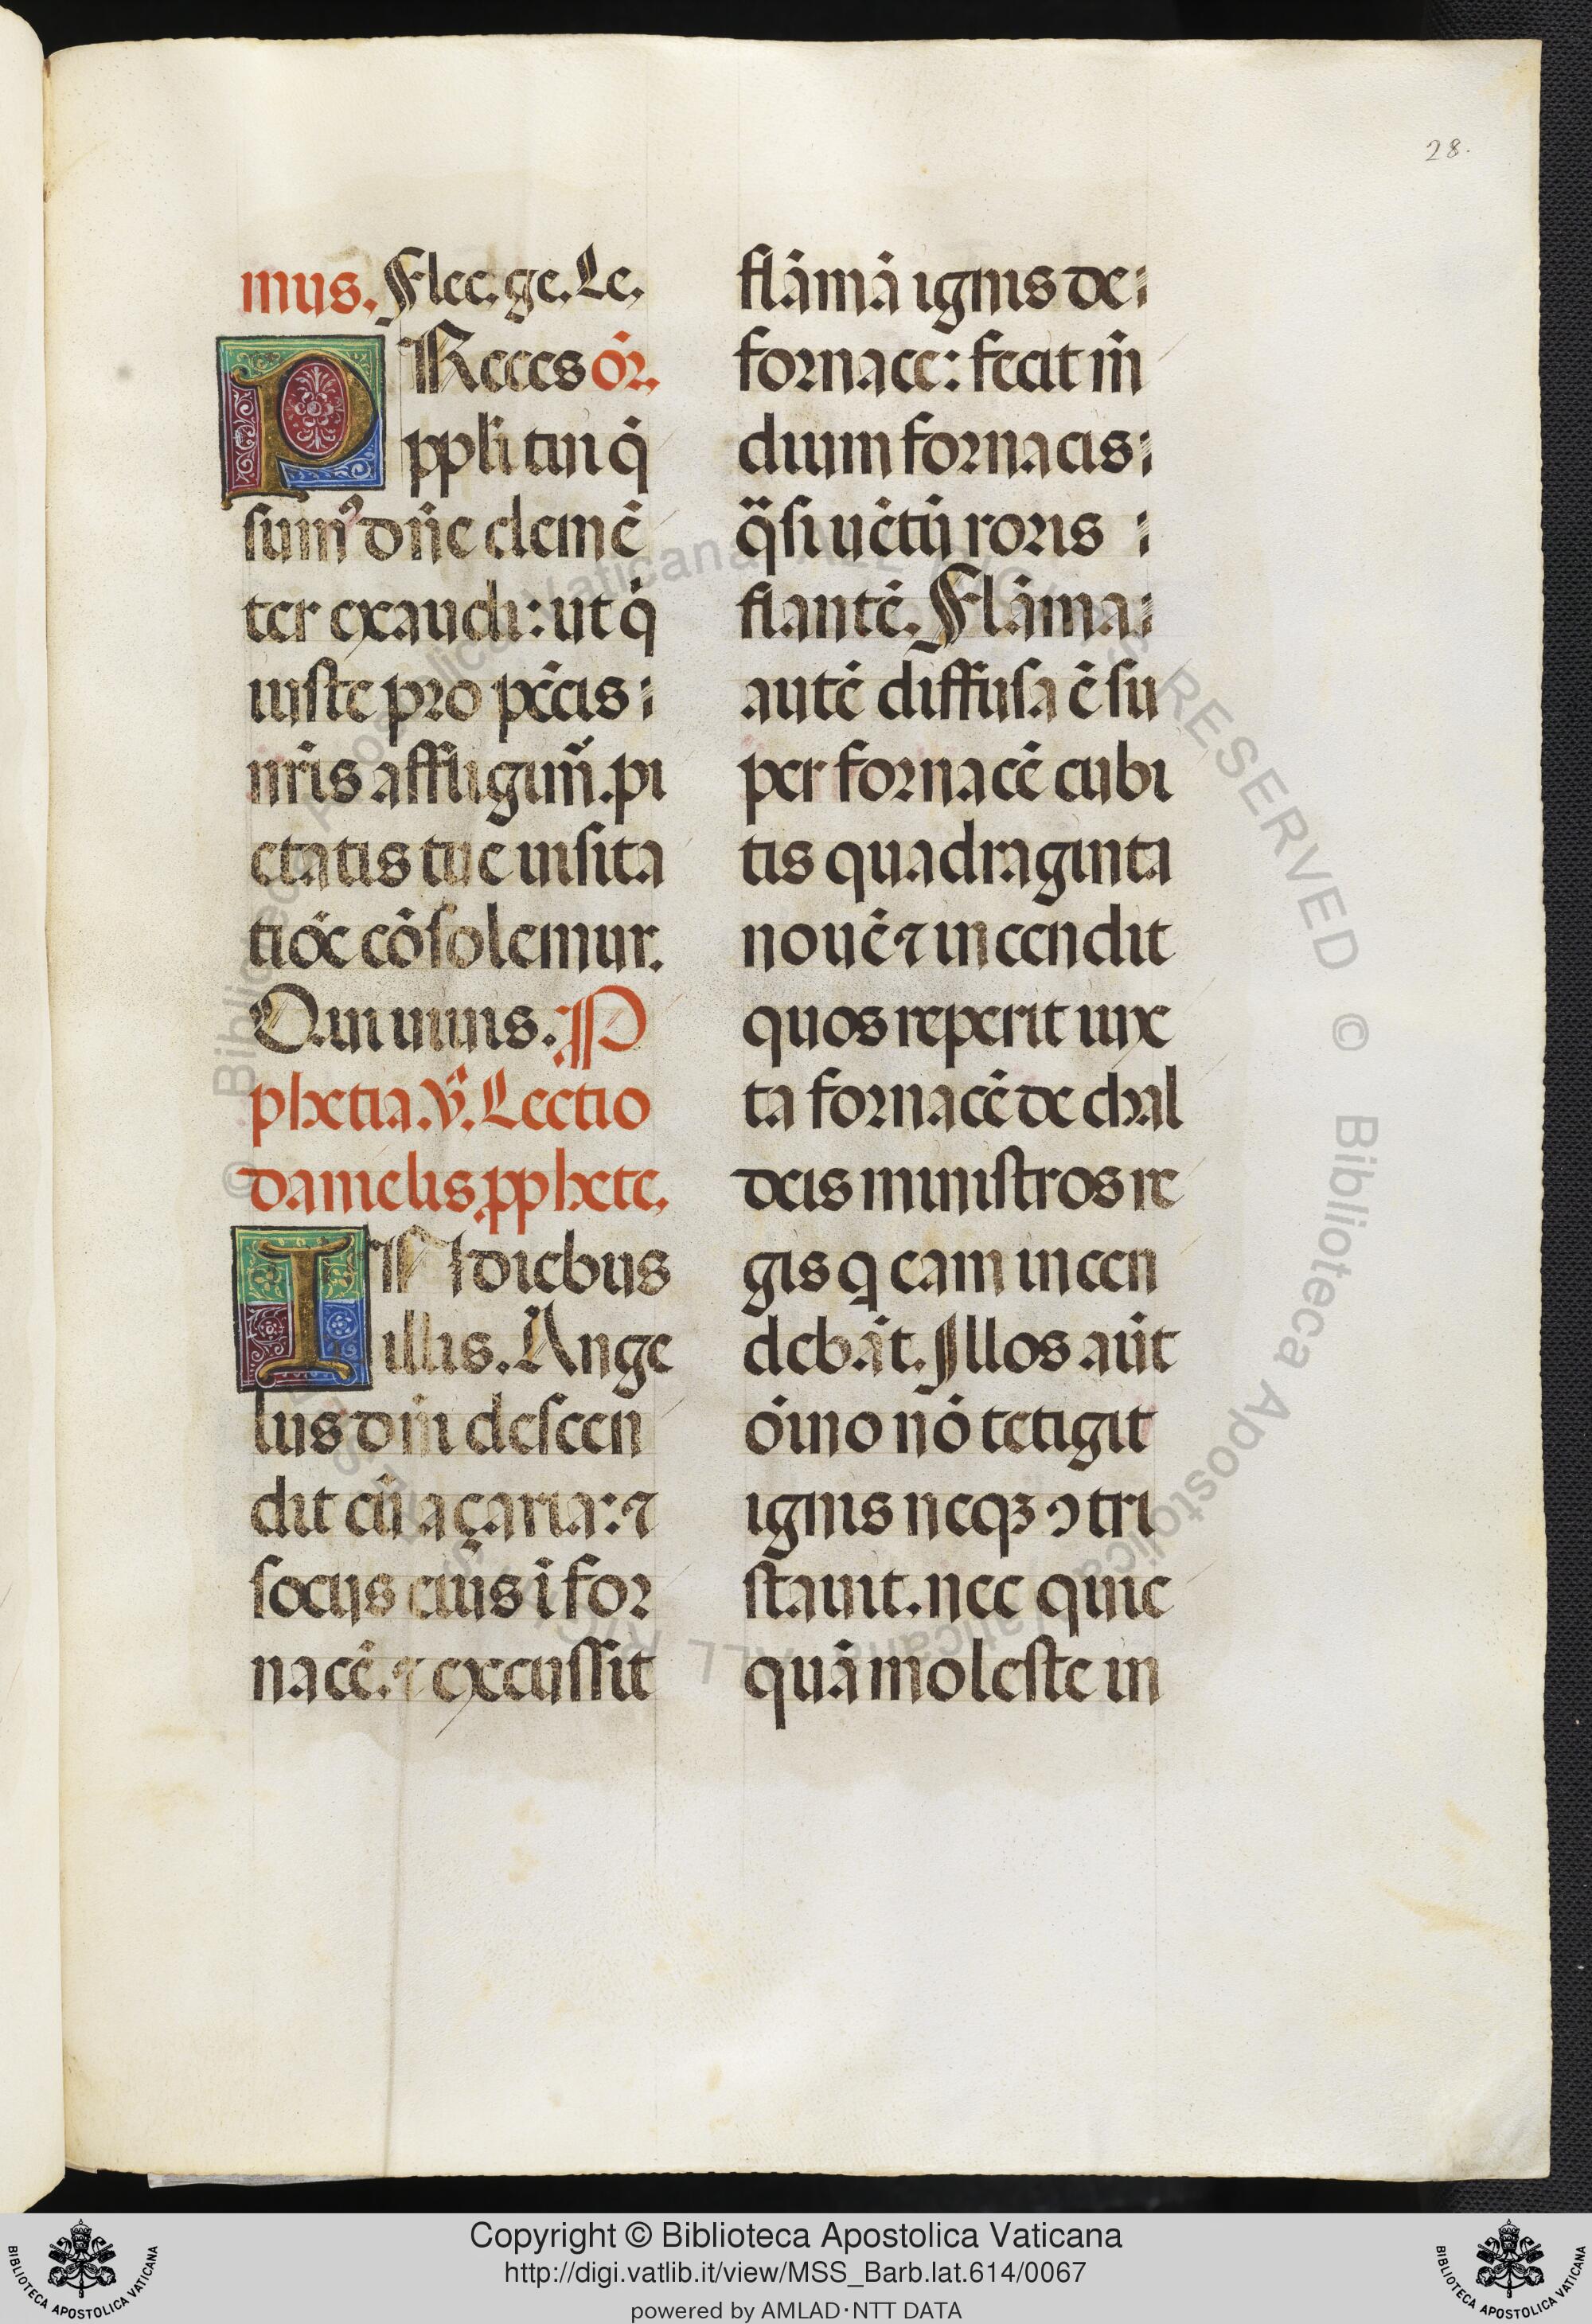 28.
mus. Flec. ge. Le.
PReces or̄.
ppli tui q̄
sumꝰ dn̄e clemē
ter exaudi: ut q̄
iuste pro pc̄cis
nr̄is affligimr̄. pi
etatis tue uisita
tiōe cōsolemur.
Qui uiuis. P
phetia. v̄. Lectio
danielis pphete.
IN diebus
illis. Ange
lus dn̄i descen
dit cū açaria: ⁊
socijs eius ī for
nacē. ⁊ excussit
flāmā ignis de
fornace: fecit m̄
dium fornacis
q̄si uētū roris
flantē. Flāma
autē diffusa ē su
per fornacē cubi
tis quadraginta
nouē ⁊ incendit
quos reperit iuxe
ta fornacē de chal
deis ministros re
gis q eam incen
debāt. Illos aūt
oīno nō tetigit
ignis neqꝫ ↄtri
stauit. nec quic
quā moleste in
© Biblioteca Apostolica Vaticana ALL RIGHTS RESERVED
Copyright © Biblioteca Apostolica Vaticana
http://digi.vatlib.it/view/MSS_Barb.lat.614/0067
powered by AMLAD·NTT DATA
BIBLIOTECA APOSTOLICA VATICANA
BIBLIOTECA APOSTOLICA VATICANA